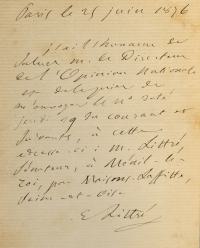 Paris le 25 juin 1876
j'ai l'honneur de
saluer M. le Directeur
de l'Opinion Nationale
et de le prier de
m'envoyer le no daté
jeudi 19 du courant et
suivants, à cette
adresse ci : M. Littré,
sénateur, à Ménil-le-
roi, par Maisons-Laffitte,
Seine-et-Oise
E Littré